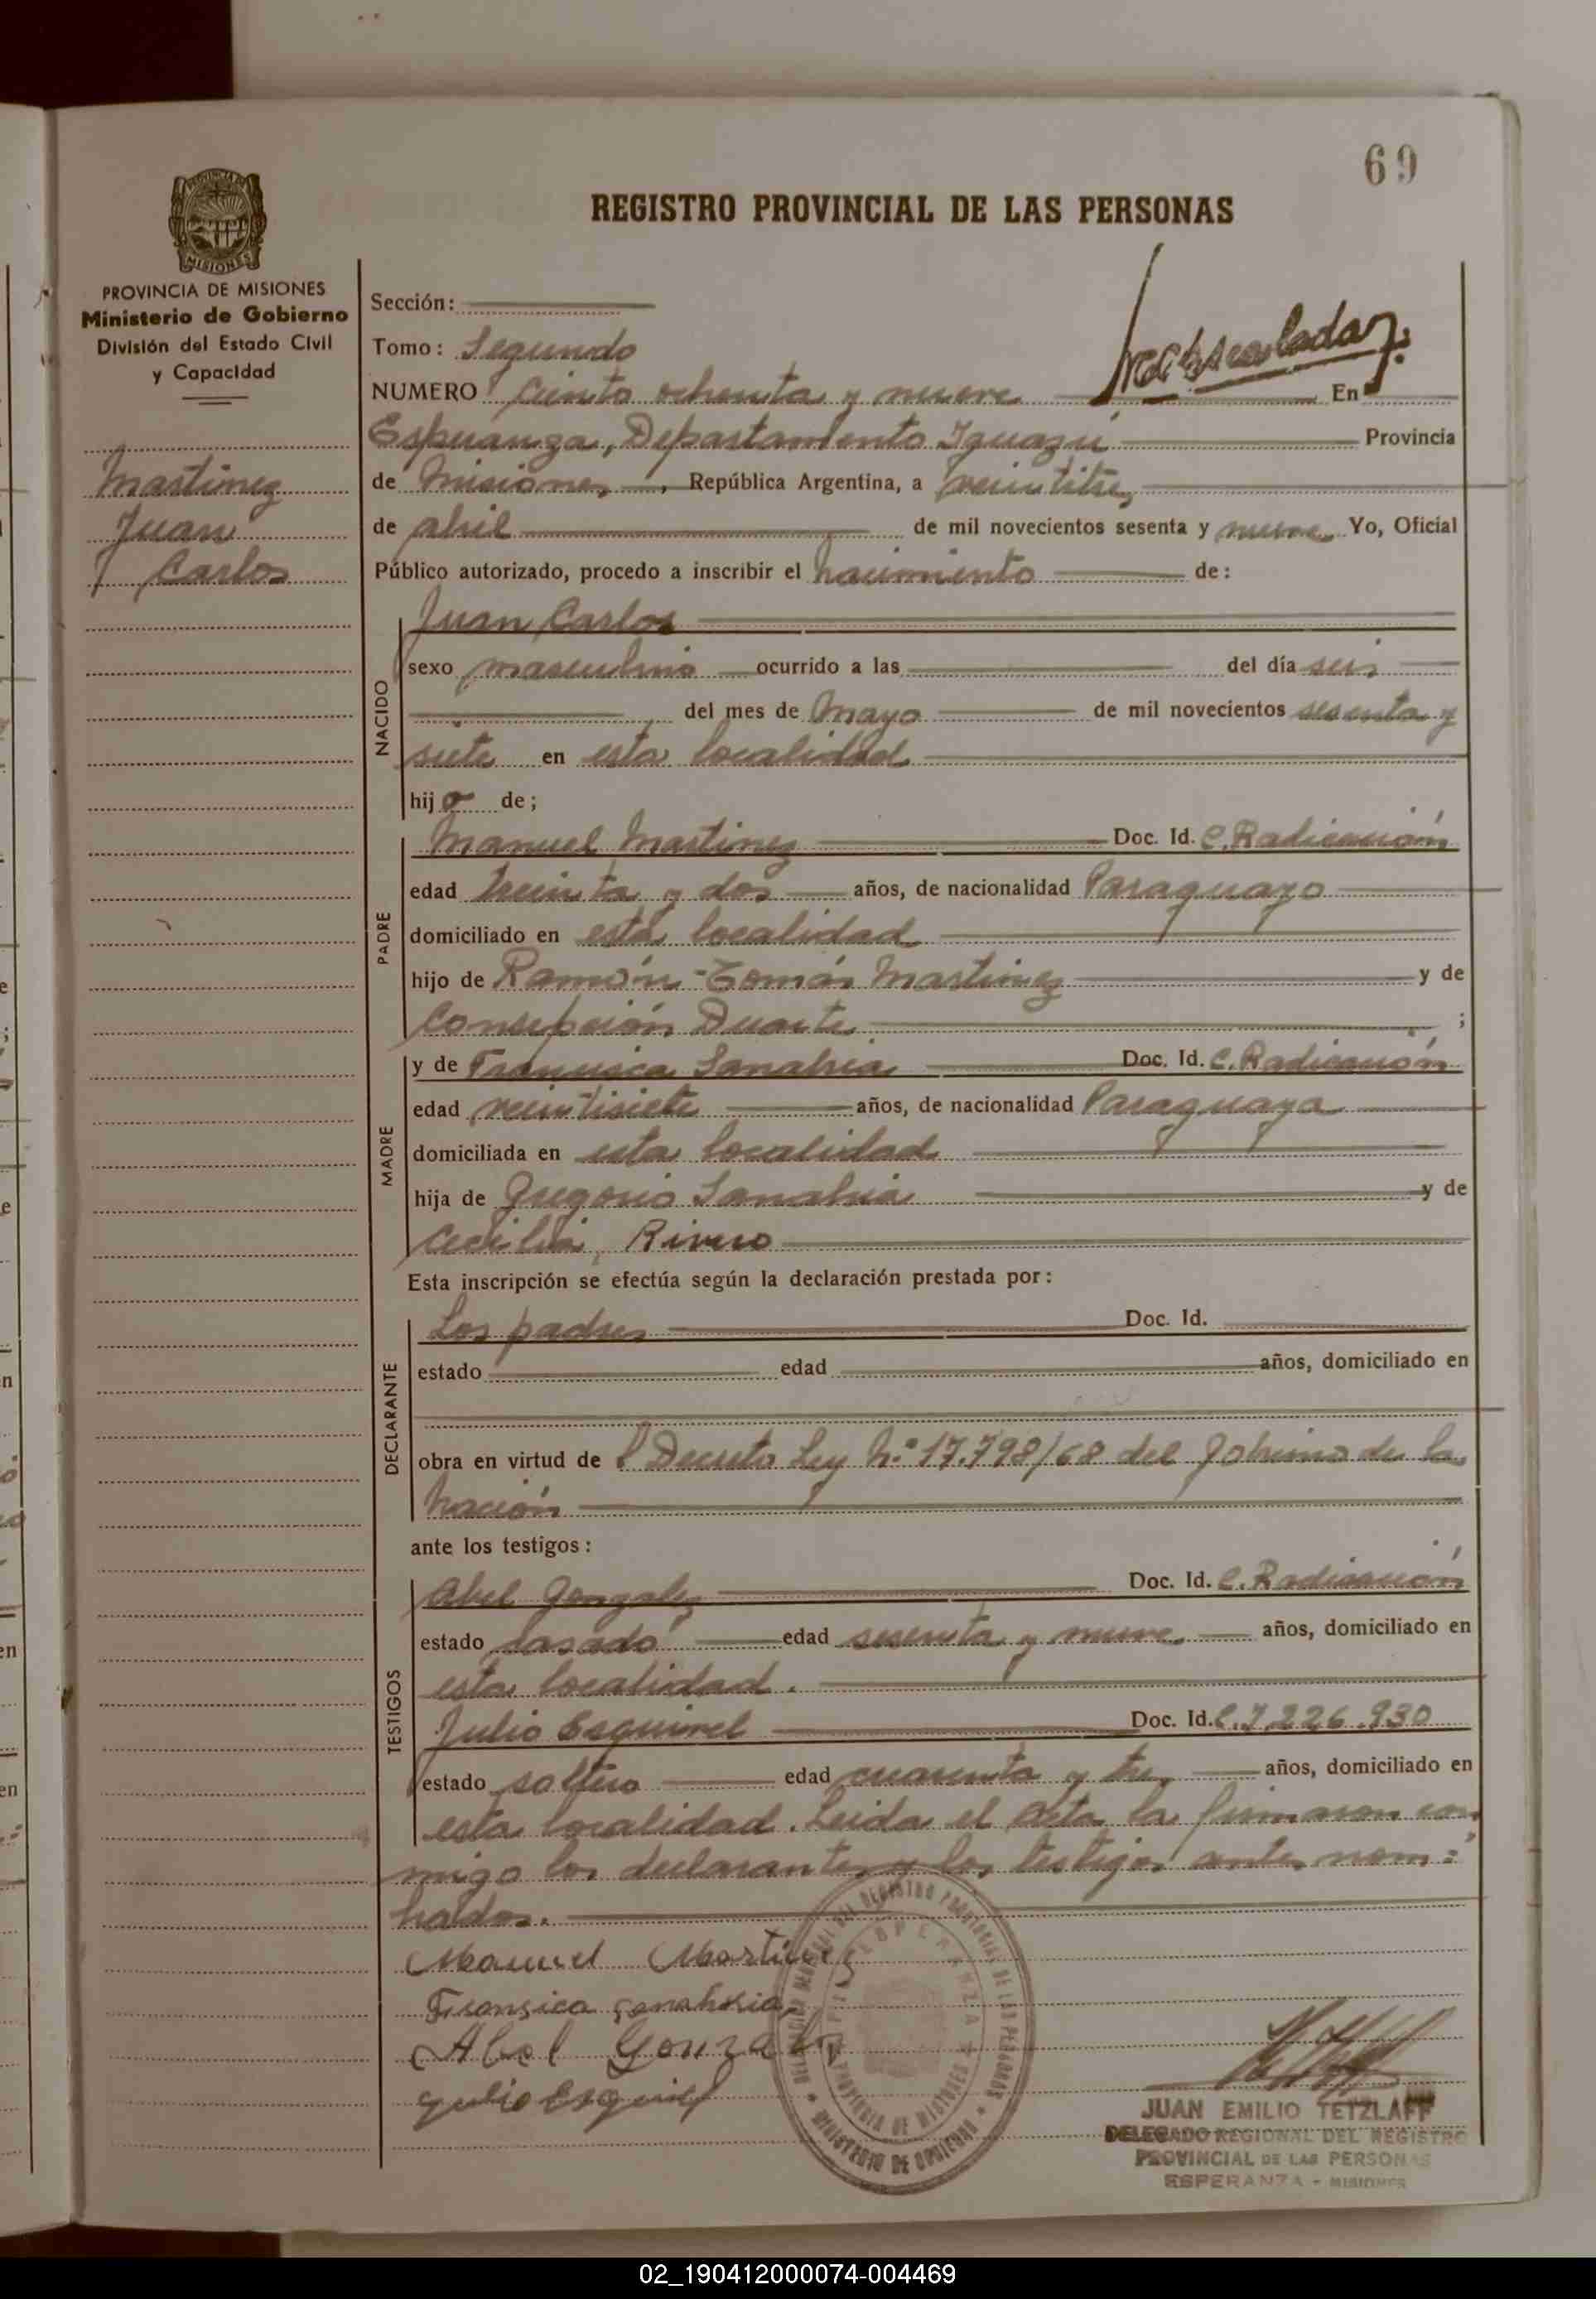 69
REGISTRO PROVINCIAL DE LAS PERSONAS
PROVINCIA DE MISIONES
MISIONES
PROVINCIA DE MISIONES
Ministerio de Gobierno
División del Estado Civil
y Capacidad
Martinez
Juan
Carlos
Sección:
Tomo: Segundo
NUMERO Ciento ochenta y nueve En
Esperanza, Departamento Iguazú Provincia
de Misiones, República Argentina, a veintitres
de abril de mil novecientos sesenta y nueve Yo, Oficial
Público autorizado, procedo a inscribir el nacimiento de:
NACIDO
Juan Carlos
sexo masculino ocurrido a las del día seis
del mes de Mayo de mil novecientos sesenta y
siete en esta localidad
hijo de;
PADRE
Manuel Martinez Doc. Id. C. Radicación
edad treinta y dos años, de nacionalidad Paraguayo
domiciliado en esta localidad
hijo de Ramón Tomás Martinez y de
Consepción Duarte ;
MADRE
y de Francisca Sanabria Doc. Id. C. Radicación
edad veintisiete años, de nacionalidad Paraguaya
domiciliada en esta localidad
hija de Gregorio Sanabria y de
Cecilia Rivero
Esta inscripción se efectúa según la declaración prestada por:
DECLARANTE
Los padres Doc. Id.
estado edad años, domiciliado en
obra en virtud de Decreto Ley N.º 17.798/68 del Gobierno de la
Nación
ante los testigos:
TESTIGOS
Abel Gonzalez Doc. Id. C. Radicación
estado casado edad sesenta y nueve años, domiciliado en
esta localidad.
Julio Esquivel Doc. Id. C.I 226.930
estado soltero edad cuarenta y tres años, domiciliado en
esta localidad. Leida el acta la firmaron con
migo los declarantes y los testigos antes nom=
brados.
Manuel Martinez
Fransica Sanabria
Abel Gonzalez
Julio Esquivel
DELEGACION REGIONAL DEL REGISTRO PROVINCIAL DE LAS PERSONAS
ESPERANZA
PROVINCIA DE MISIONES
MINISTERIO DE GOBIERNO
JUAN EMILIO TETZLAFF
DELEGADO REGIONAL DEL REGISTRO
PROVINCIAL DE LAS PERSONAS
ESPERANZA - MISIONES
02_190412000074-004469